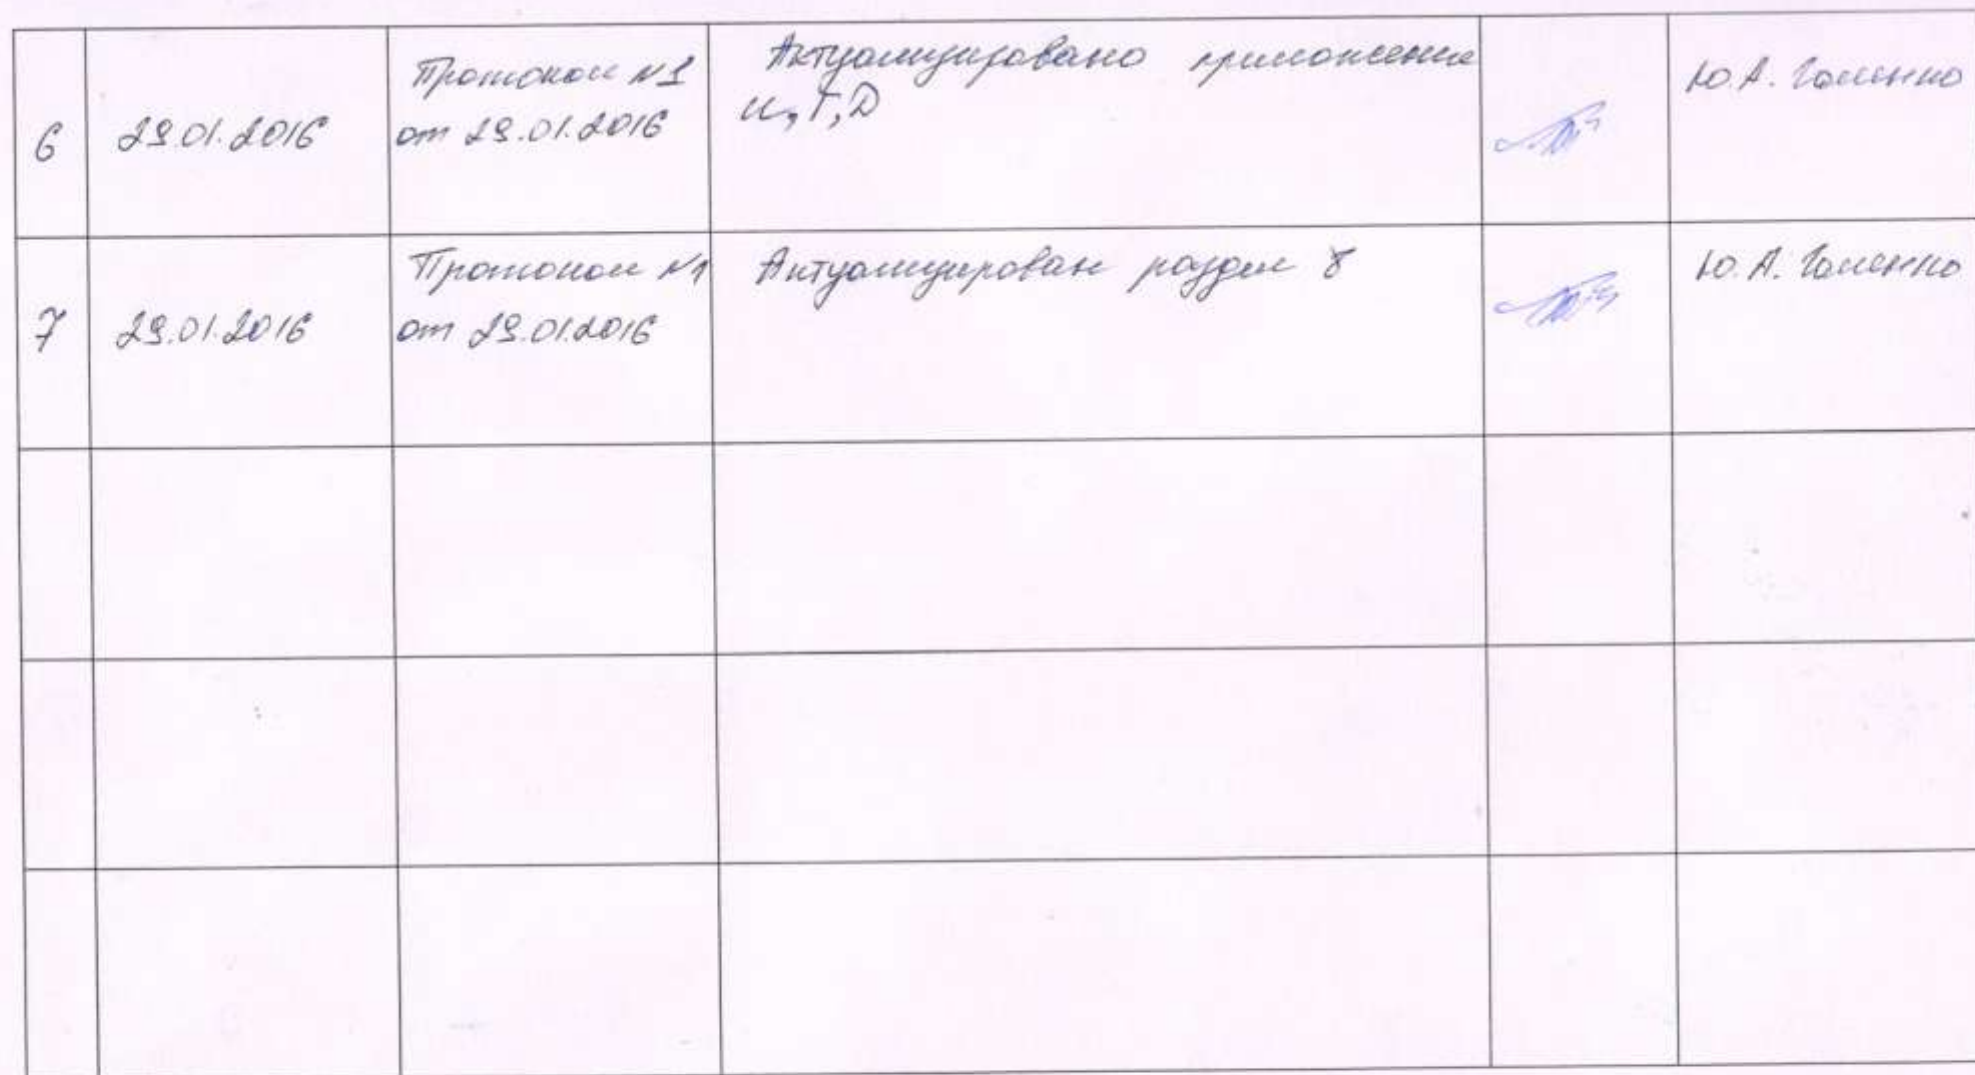 6
29.01.2016
Протокол №1
от 29.01.2016
Актуализировано приложение
И, Г, Д
Ю.А. Галенко
7
29.01.2016
Протокол №1
от 29.01.2016
Актуализирован раздел 8
Ю.А. Галенко